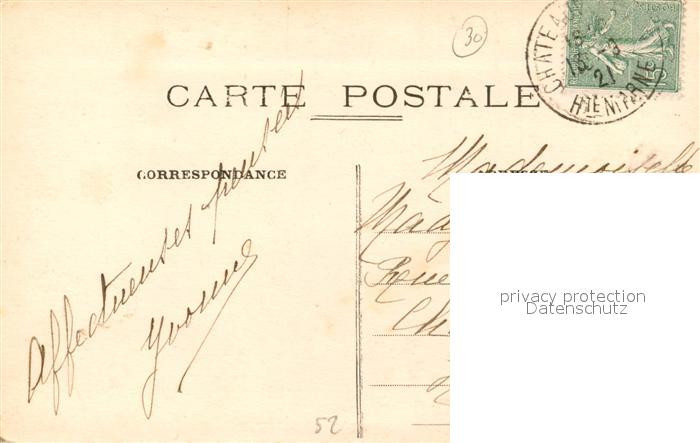 30
CHATEA
18 -3
21
HTE MARNE
CARTE POSTALE
CORRESPONDANCE
Affectueuses pensées
Yvonne
Mademoiselle
privacy protection
Datenschutz
52